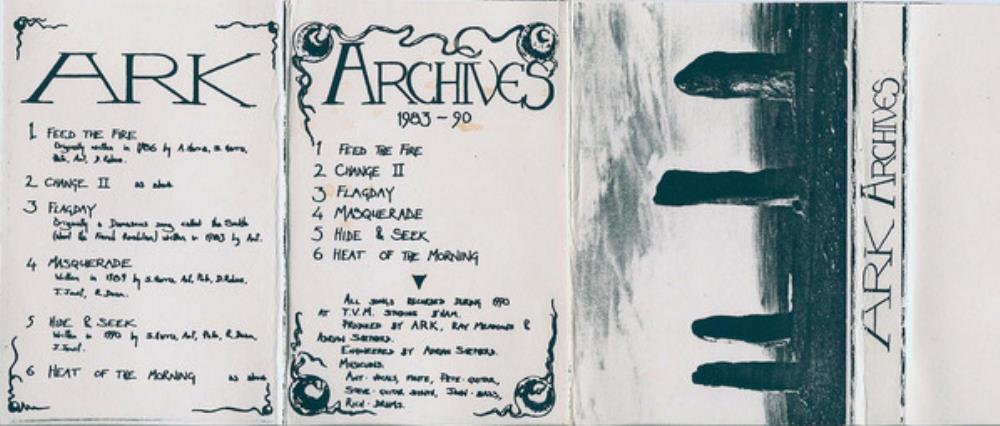 ARK
1 FEED THE FIRE
Originally written in 1986 by A.Harris, S. Harris,
Pete, Ant,
2 CHANGE II as above
3 FLAGDAY
Originally a Damascus song called the
(about the French Revolution) written in 1983 by Ant.
4 MASQUERADE
Written in 1989 by S.Harris, Ant, Pete,
J.Jowl, R.Dean.
5 HIDE & SEEK
Written in 1990 by S.Harris, Ant, Pete, R.Dean,
J.Jowl.
6 HEAT OF THE MORNING as above
ARCHIVES
1983 ~ 90
1 FEED THE FIRE
2 CHANGE II
3 FLAGDAY
4 MASQUERADE
5 HIDE & SEEK
6 HEAT OF THE MORNING
ALL SONGS RECORDED DURING 1990
AT T.V.M. STUDIOS
PRODUCED BY ARK, RAY &
ADRIAN SHEPHERD.
ENGINEERED BY ADRIAN SHEPHERD.
MUSICIANS.
ANT - VOCALS, FLUTE, PETE - GUITAR,
STEVE - GUITAR SYNTH, JOHN - BASS,
RICH - DRUMS.
ARK ARCHIVES